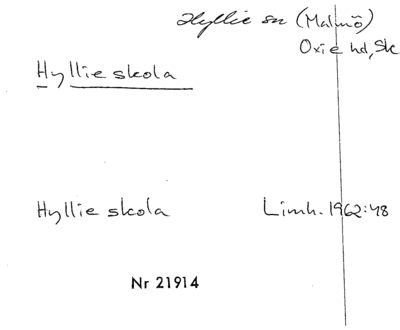 Hyllie sn (Malmö)
Oxie hd, Sk
Hyllie skola
Hyllie skola Limh. 1962:48
Nr 21914